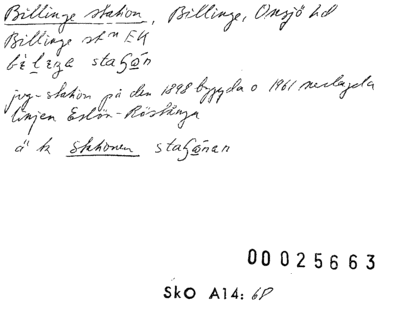 Billinge station, Billinge, Onsjö hd
Billinge stn EK
jvg-station på den 1898 byggda o 1961 nedlagda
linjen Eslöv-Röstånga
ä k stationen
00025663
SkO A14: 68